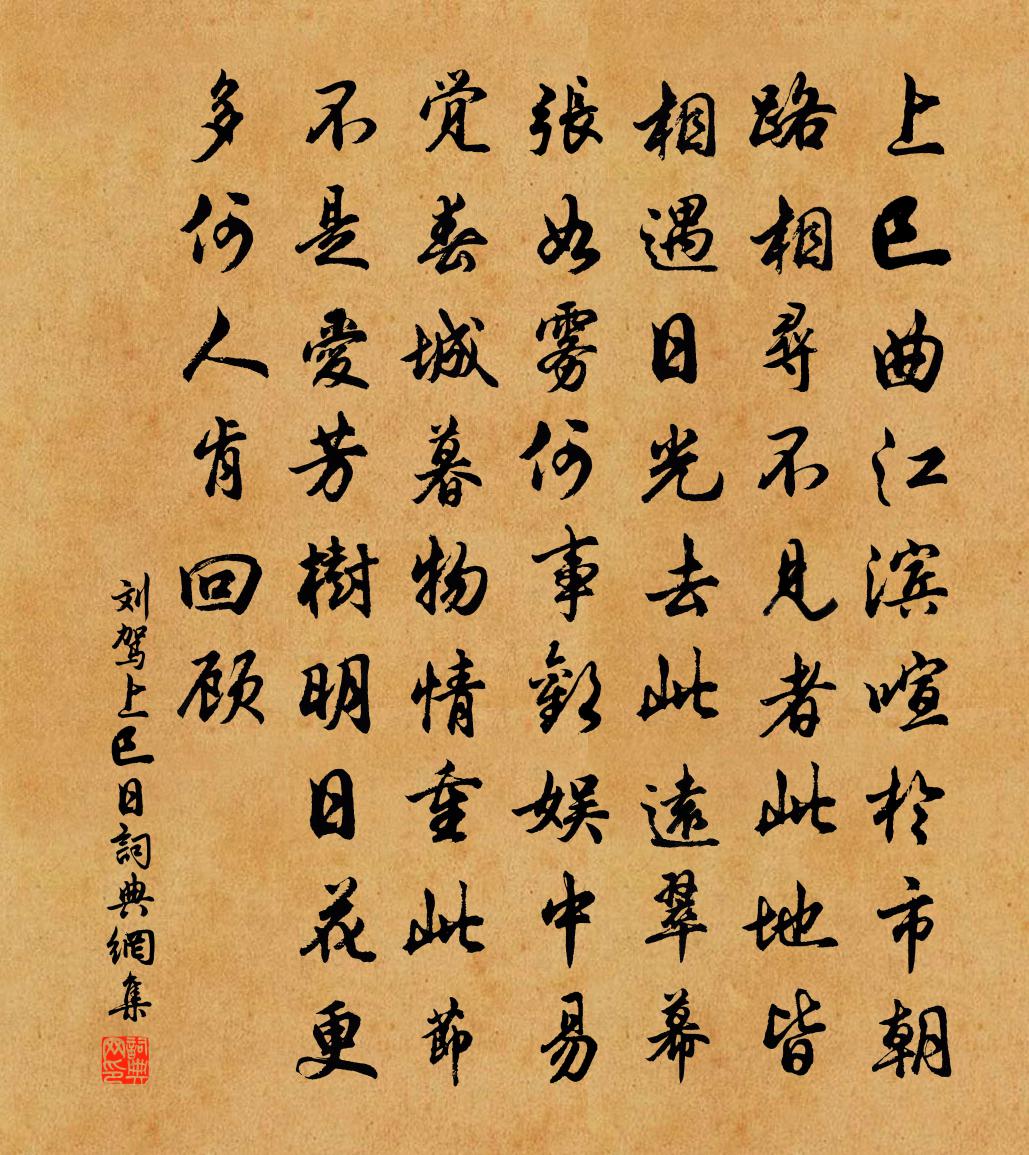 上巳曲江滨喧於市朝
路相尋不見者此地皆
相遇日光去此遠翠幕
張如雾何事歡娱中易
觉春城暮物情重此節
不是愛芳樹明日花更
多何人肯回顾
刘驾上巳日詞典網集
詞典网印